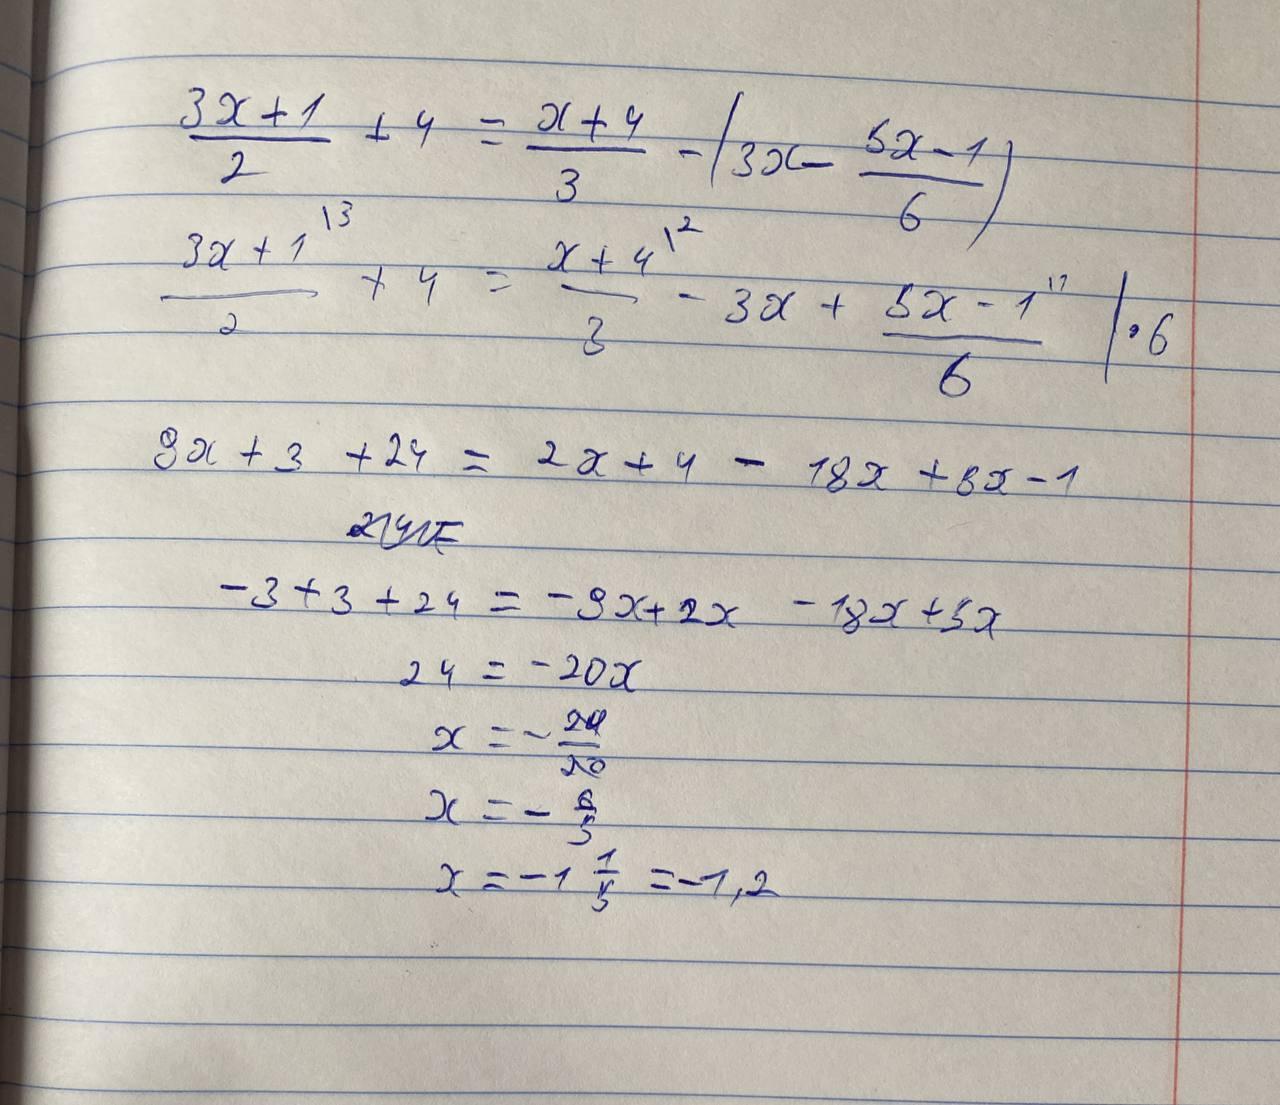 (3x+1)/2 + 4 = (x+4)/3 - (3x - (5x-1)/6)
(3x+1)/2 \3 + 4 = (x+4)/3 \2 - 3x + (5x-1)/6 \1 | · 6
9x + 3 + 24 = 2x + 4 - 18x + 5x - 1
-3 + 3 + 24 = -9x + 2x - 18x + 5x
24 = -20x
x = - 24/20
x = - 6/5
x = -1 1/5 = -1,2